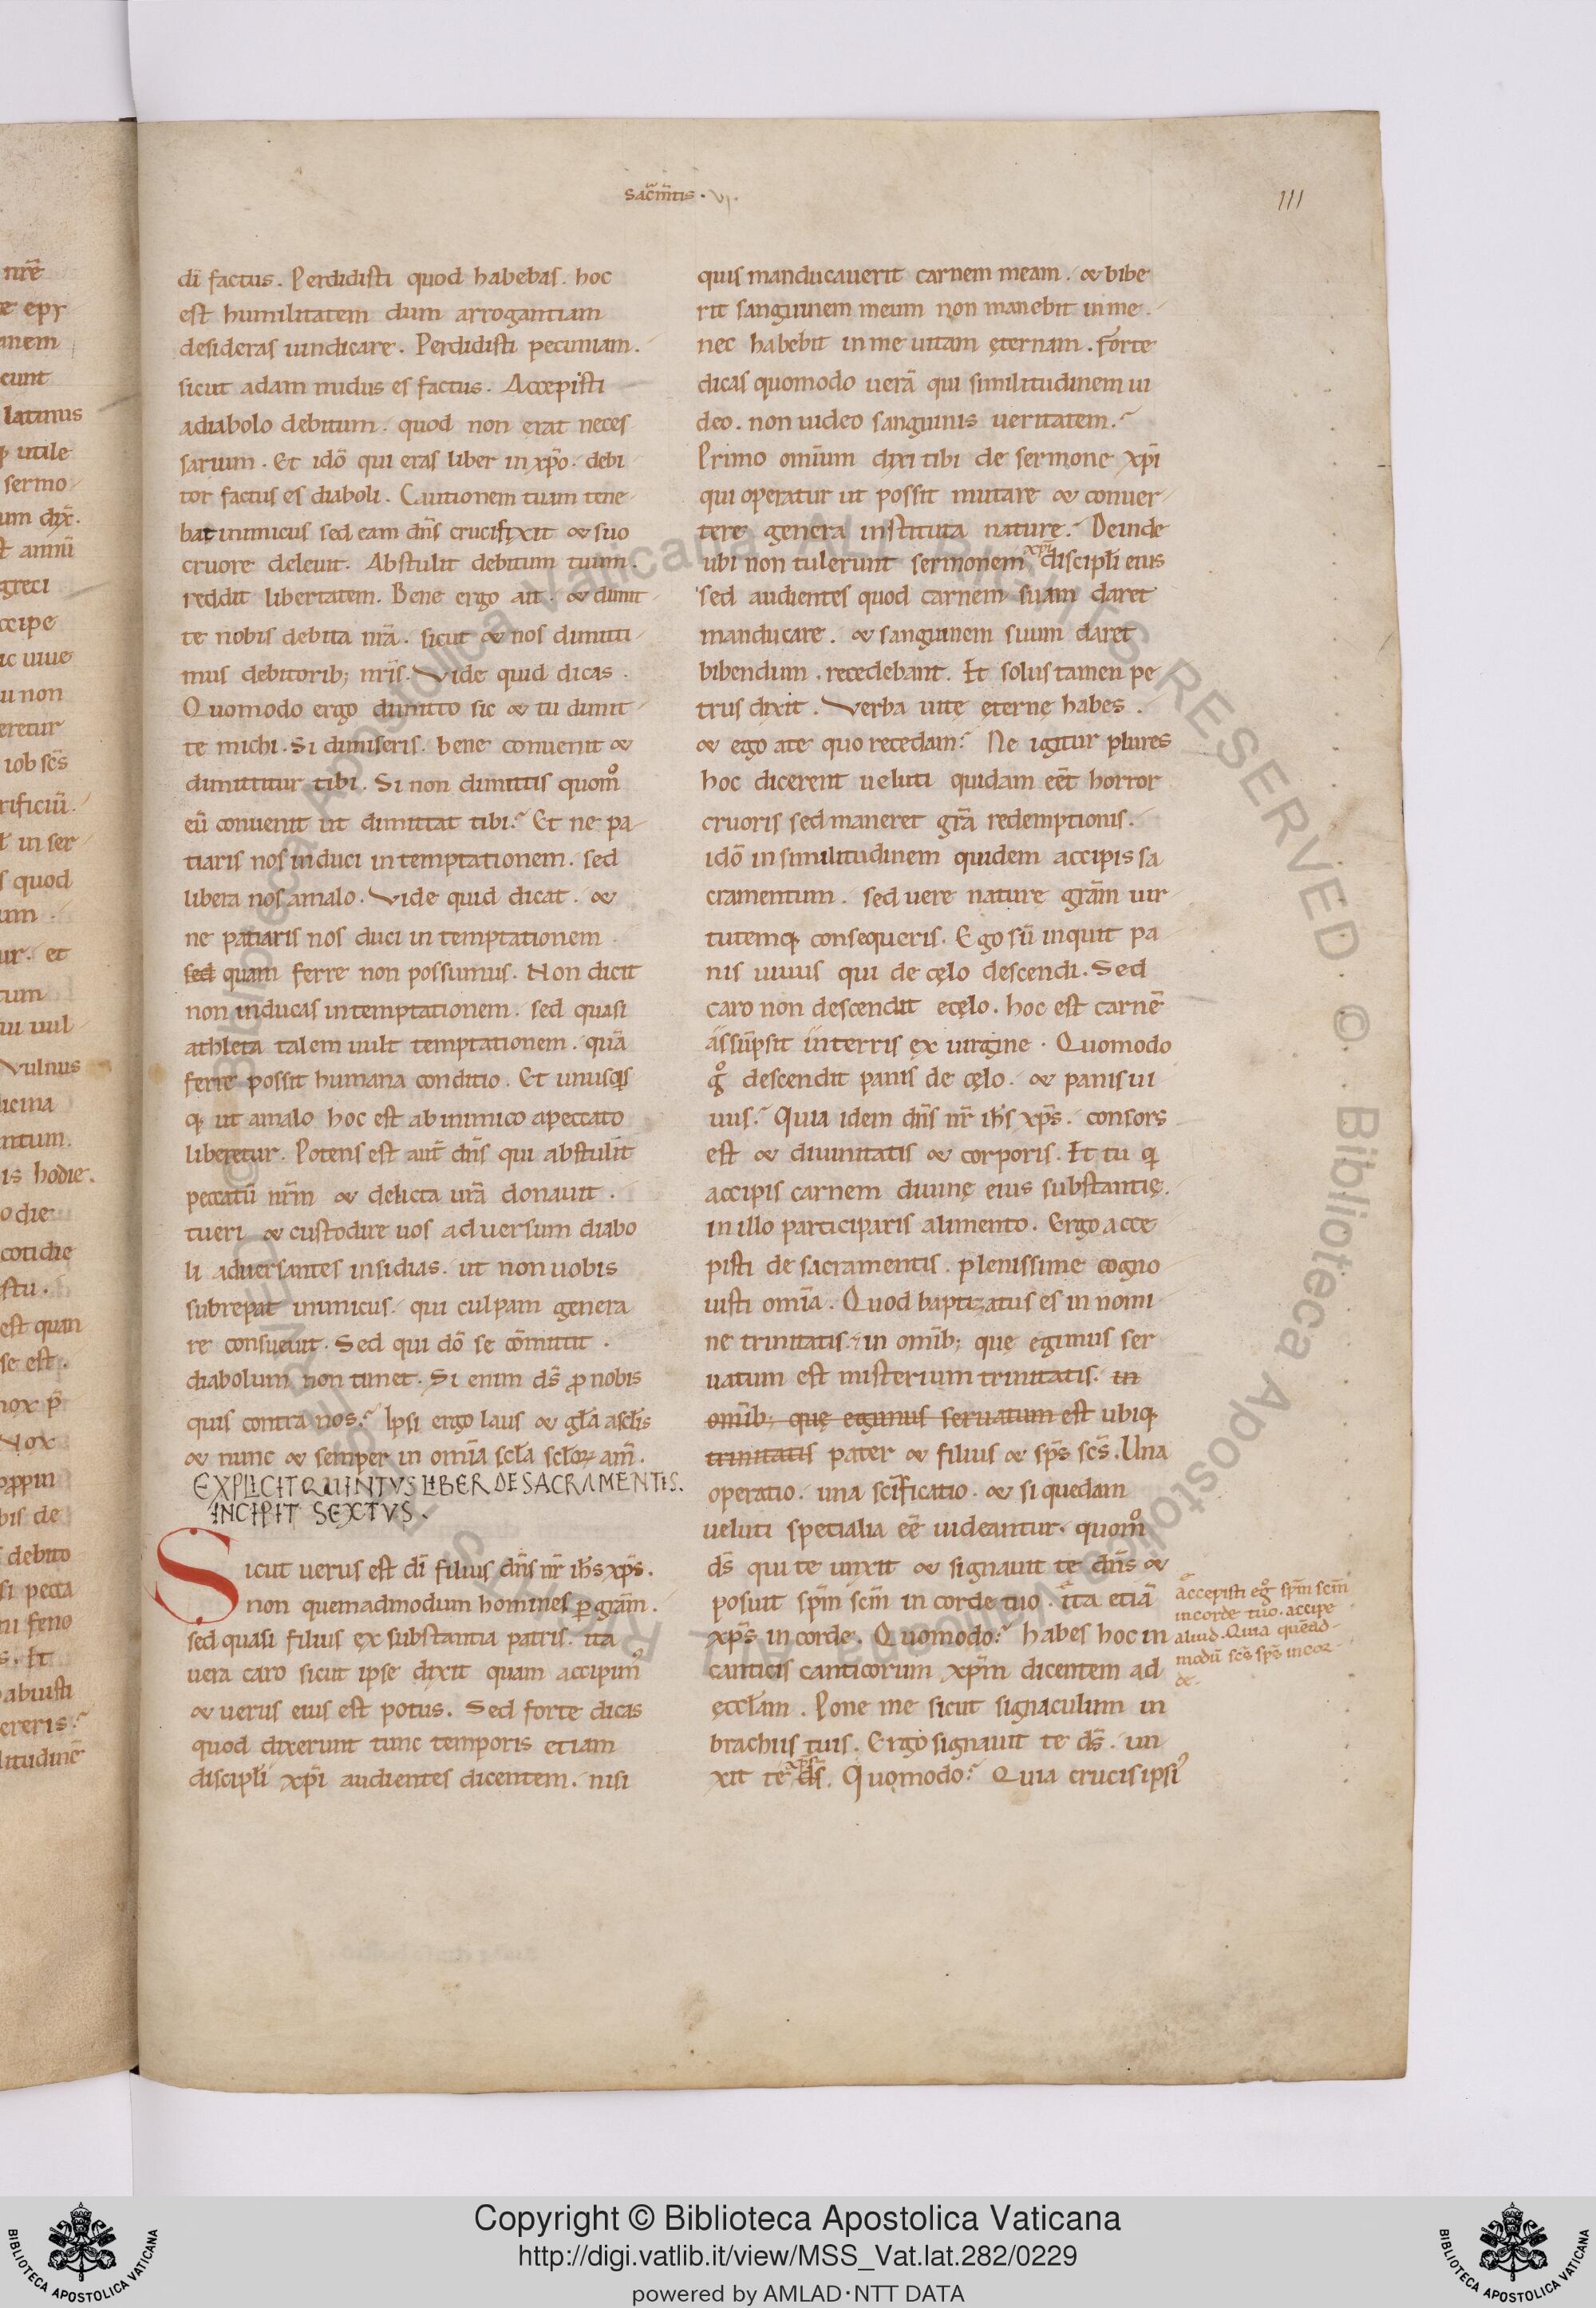 sac̄m̄tis · vı·
111
nr̄e
e epr
anem
eunt
latinus
utile
sermo
um dix̄.
t anni
greci
ccipe
ac uiue
u non
eretur
iob sc̄s
rificiū.
in ser
s quod
um
ur. et
tum
Vulnus
icina
ntum.
is hodie.
o die
cotidie
ſtu.
eſt quan
se eſt.
nox p̄
Nox
bis de
debito
si pecca
ni feno
s. Et
abiuſti
ereris.
litudinē
dī factus. Perdidiſti quod habebas. hoc
eſt humilitatem dum arrogantiam
desideras uindicare. Perdidiſti pecuniam.
sicut adam nudus es factus. Accepiſti
adiabolo debitum. quod non erat neceſ
sarium. Et idō qui eras liber in xp̄o. debi
tor factus es diaboli. Cautionem tuam tene
bat inimicus sed eam dn̄s crucifixit & suo
cruore deleuit. Abſtulit debitum tuum.
reddit libertatem. Bene ergo ait. & dimit
te nobis debita nr̄a. sicut & nos dimitti
mus debitorib; nr̄is. Vide quid dicas.
Quomodo ergo dimitto sic & tu dimit
te michi. Si dimiseris. bene conuenit &
dimittitur tibi. Si non dimittis quomͦ
eū conuenit ut dimittat tibi? Et ne pa
tiaris nos induci in temptationem. sed
libera nos amalo. Vide quid dicat. &
ne patiaris nos duci in temptationem
sed quam ferre non possumus. Non dicit
non inducas intemptationem. sed quasi
athleta talem uult temptationem. quā
ferre possit humana conditio. Et unusq̇s
q; ut amalo hoc eſt ab inimico apeccato
liberetur. Potens eſt aut̄ dn̄s qui abſtulit
peccatū nr̄m & delicta ur̄a donauit.
tueri & cuſtodire uos aduersum diabo
li aduersantes insidias. ut non uobis
subrepat inimicus. qui culpam genera
re consueuit. Sed qui dō se cōmittit.
diabolum non timet. Si enim ds̄ ꝓ nobis
quis contra nos? Ipsi ergo laus & gl̄a ascl̄is
& nunc & semper in omīa scl̄a scl̄oꝝ am̄.
EXPLICIT QUINTVS LIBER DE SACRAMENTIS.
INCIPIT SEXTVS.
Sicut uerus eſt dī filius dn̄s nr̄ ih̄s xp̄s.
non quemadmodum homines ꝑ grām.
sed quasi filius ex substantia patris. ita
uera caro sicut ipse dixit quam accipim᾽
& uerus eius eſt potus. Sed forte dicas
quod dixerunt tunc temporis etiam
discipl̄i xp̄i audientes dicentem. nisi
quis manducauerit carnem meam. & bibe
rit sanguinem meum non manebit in me.
nec habebit in me uitam ęternam. Forte
dicas quomodo uerā qui similitudinem ui
deo. non uideo sanguinis ueritatem?
Primo omīum dixi tibi de sermone xp̄i
qui operatur ut possit mutare & conuer
tere genera inſtituta naturę. Deinde
xp̄i
ubi non tulerunt sermonem discipl̄i eius
sed audientes quod carnem suam daret
manducare. & sanguinem suum daret
bibendum. recedebant. Et solus tamen pe
trus dixit. Verba uitę ęternę habes.
& ego ate quo recedam? Ne igitur plures
hoc dicerent ueluti quidam eēt horror
cruoris sed maneret grā redemptionis.
idō in similitudinem quidem accipis sa
cramentum. sed uere naturę grām uir
tutemq; consequeris. Ego sū inquit pa
nis uiuus qui de cęlo descendi. Sed
caro non descendit ecęlo. hoc eſt carnē
assūpsit interris ex uirgine. Quomodo
gͦ descendit panis de cęlo. & panis ui
uus? Quia idem dn̄s nr̄ ih̄s xp̄s. consors
eſt & diuinitatis & corporis. Et tu q̇
accipis carnem diuinę eius subſtantię.
in illo participaris alimento. Ergo acce
piſti de sacramentis. plenissime cogno
uiſti omīa. Quod baptizatus es in nomi
ne trinitatis. in omīb; quę egimus ser
uatum eſt miſterium trinitatis. in
omīb; quę egimus seruatum eſt ubiq;
trinitatis pater & filius & sp̄s sc̄s. Una
operatio. una sc̄ificatio. & si quedam
ueluti specialia eē uideantur. quomͦ
ds̄ qui te unxit & signauit te dn̄s &
posuit sp̄m sc̄m in corde tuo. ita etiā
xp̄s in corde. Quomodo? habes hoc in
canticis canticorum xp̄m dicentem ad
ęccl̄am. Pone me sicut signaculum in
brachiis tuis. Ergo signauit te ds̄. un
xp̄s
xit te ds̄. Quomodo? Quia crucis ipsi᾽
accepisti eg̊ sp̄m sc̄m
in corde tuo. accipe
aliud. Quia quēad
modū sc̄s sp̄s in cor
de.
Copyright © Biblioteca Apostolica Vaticana
http://digi.vatlib.it/view/MSS_Vat.lat.282/0229
powered by AMLAD·NTT DATA
BIBLIOTECA APOSTOLICA VATICANA
BIBLIOTECA APOSTOLICA VATICANA